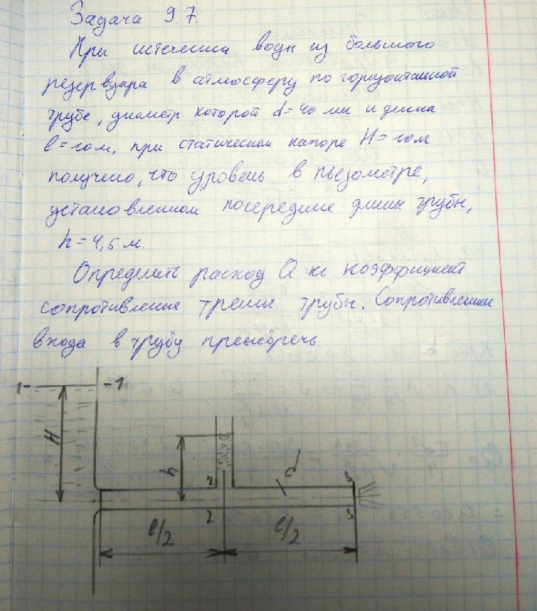 Задача 9.7.
При истечении воды из большого
резервуара в атмосферу по горизонтальной
трубе, диаметр которой d=40 мм и длина
l=10м, при статическом напоре H=10м
получено, что уровень в пьезометре,
установленном посередине длины трубы,
h=4,5 м.
Определить расход Q и коэффициент
сопротивления трения трубы. Сопротивлением
входа в трубу пренебречь
1 - - 1
H
h
d
2
3
2
3
l/2
l/2